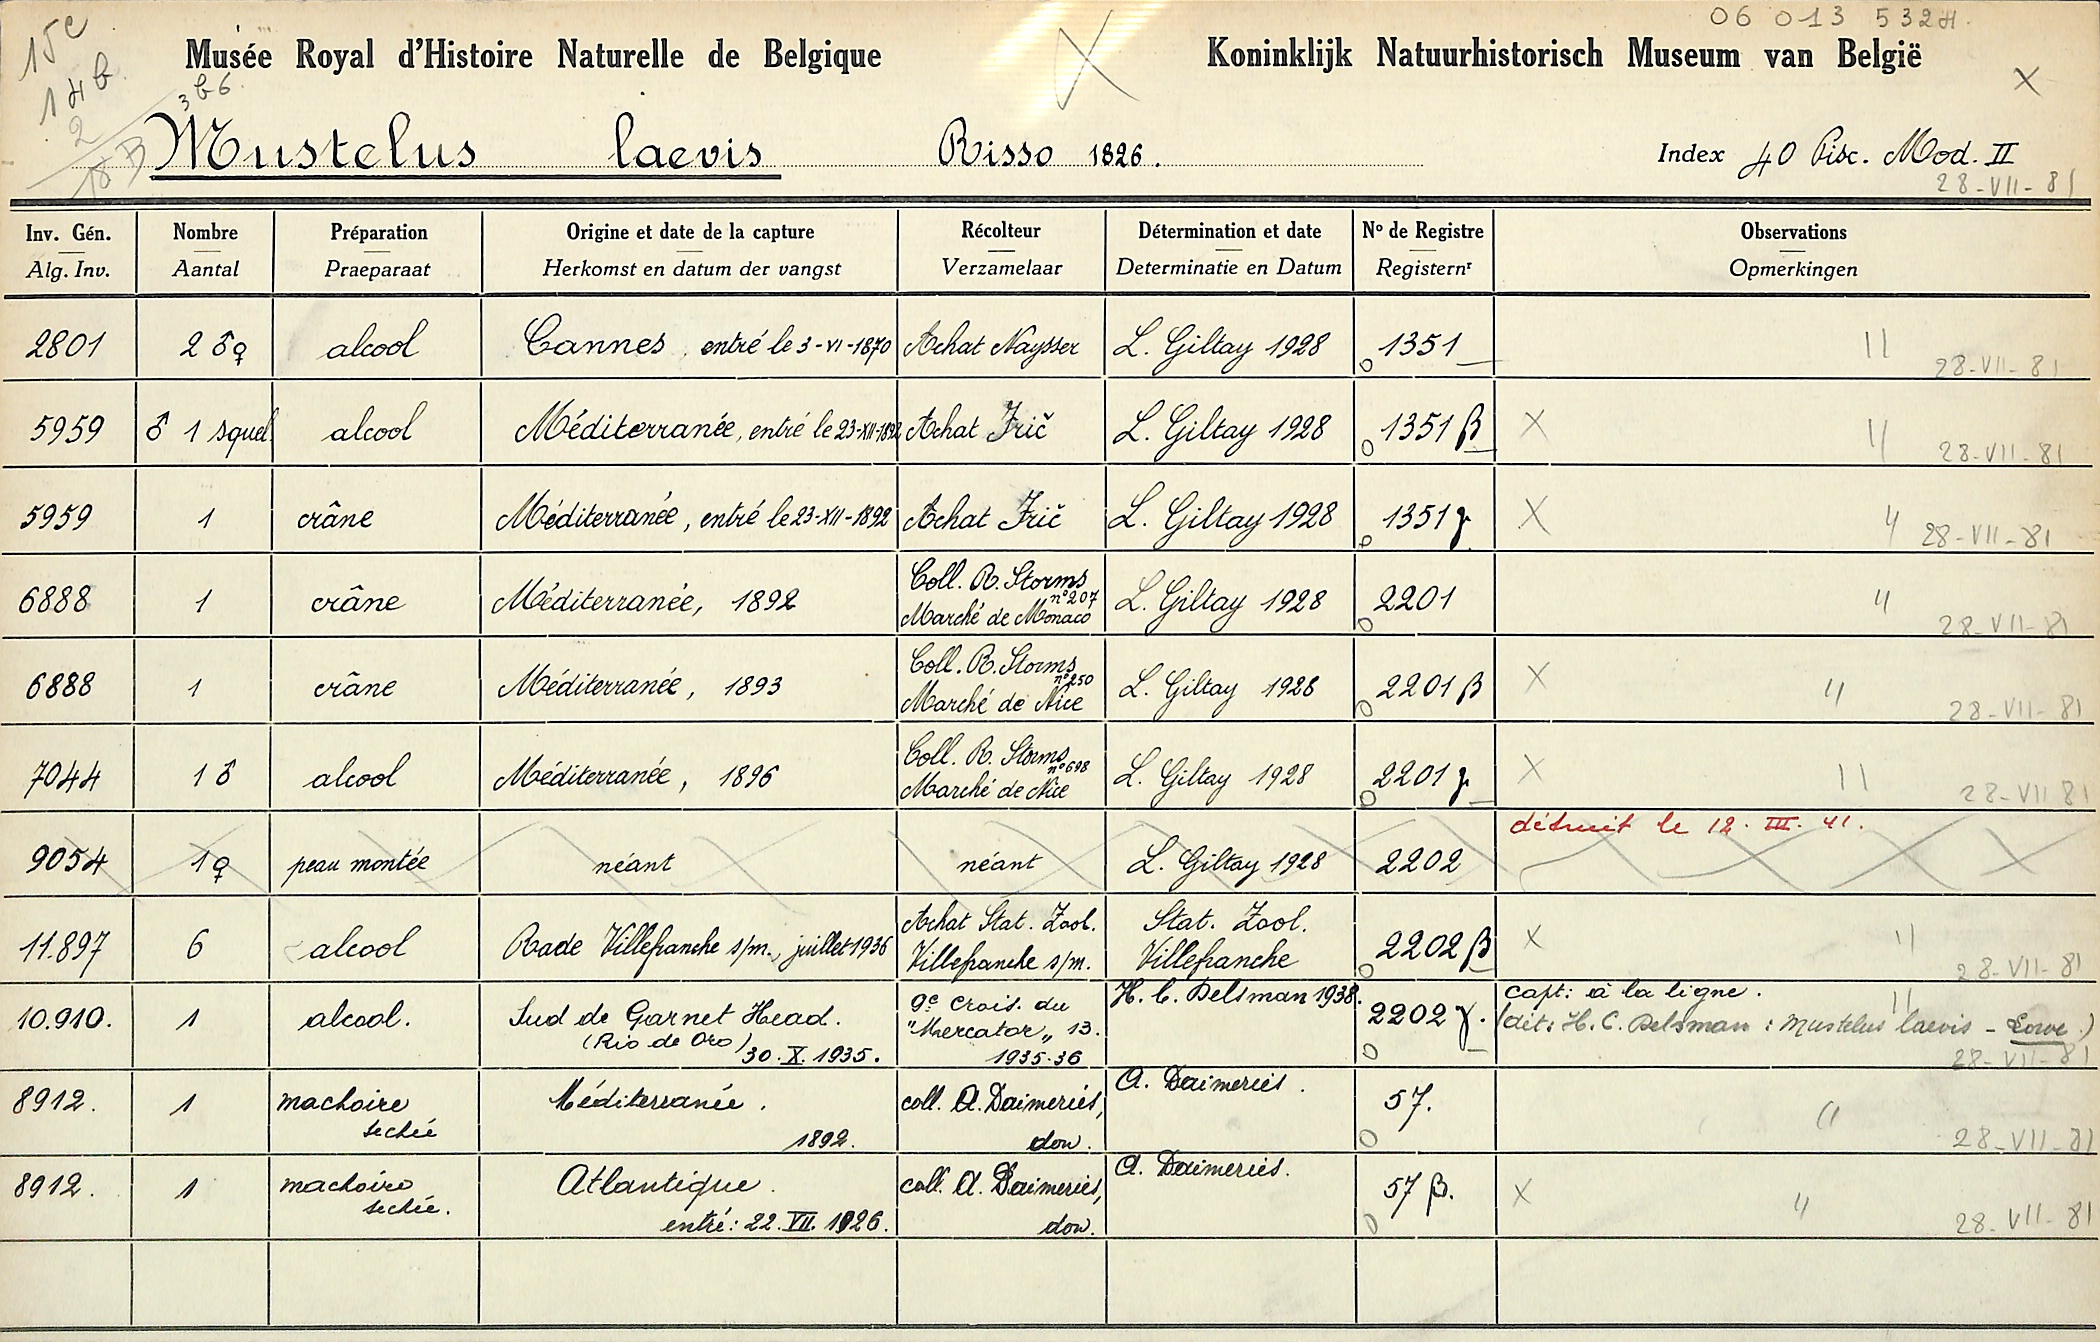 06 013 5324.
15c
14b
3b6.
2
18 B
Musée Royal d'Histoire Naturelle de Belgique X Koninklijk Natuurhistorisch Museum van België
X
Mustelus laevis Risso 1826. Index 40 Pisc. Mod. II
28-VII-81
Inv. Gén. Nombre Préparation Origine et date de la capture Récolteur Détermination et date No de Registre Observations
Alg. Inv. Aantal Praeparaat Herkomst en datum der vangst Verzamelaar Determinatie en Datum Registernr Opmerkingen
2801 2 ♂♀ alcool Cannes, entré le 3-VI-1870 Achat Naysser L. Giltay 1928 1351 11
28-VII-81
5959 ♂ 1 squel. alcool Méditerranée, entré le 23-XII-1892 Achat Frič L. Giltay 1928 1351 β X 11
28-VII-81
5959 1 crâne Méditerranée, entré le 23-XII-1892 Achat Frič L. Giltay 1928 1351 γ X 11
28-VII-81
6888 1 crâne Méditerranée, 1892 Coll. R. Storms n°207 L. Giltay 1928 2201 11
Marché de Monaco 28-VII-81
6888 1 crâne Méditerranée, 1893 Coll. R. Storms n°250 L. Giltay 1928 2201 β X 11
Marché de Nice 28-VII-81
7044 1 ♂ alcool Méditerranée, 1896 Coll. R. Storms n°698 L. Giltay 1928 2201 γ X 11
Marché de Nice 28-VII 81
détruit le 12. III. 41.
9054 1♀ peau montée néant néant L. Giltay 1928 2202
11.897 6 alcool Rade Villefranche s/m., juillet 1936 Achat Stat. Zool. Stat. Zool. 2202 β X 11
Villefranche s/m. Villefranche 28-VII-81
10.910. 1 alcool. Sud de Garnet Head. 9e Crois. du H. C. Delsman 1938. 2202 γ. Capt: à la ligne. 11
(Rio de Oro) "Mercator" 13. (dét: H. C. Delsman: Mustelus laevis - Lowe.)
30. X. 1935. 1935-36 28-VII-81
8912. 1 machoire Méditerranée. coll. A. Daimeriés, A. Daimeriés. 57. 11
sechée 1892. don. 28-VII-81
8912. 1 machoire Atlantique. coll. A. Daimeriés, A. Daimeriés. 57 β. X 11
sechée. entré: 22. VII. 1926. don. 28-VII-81